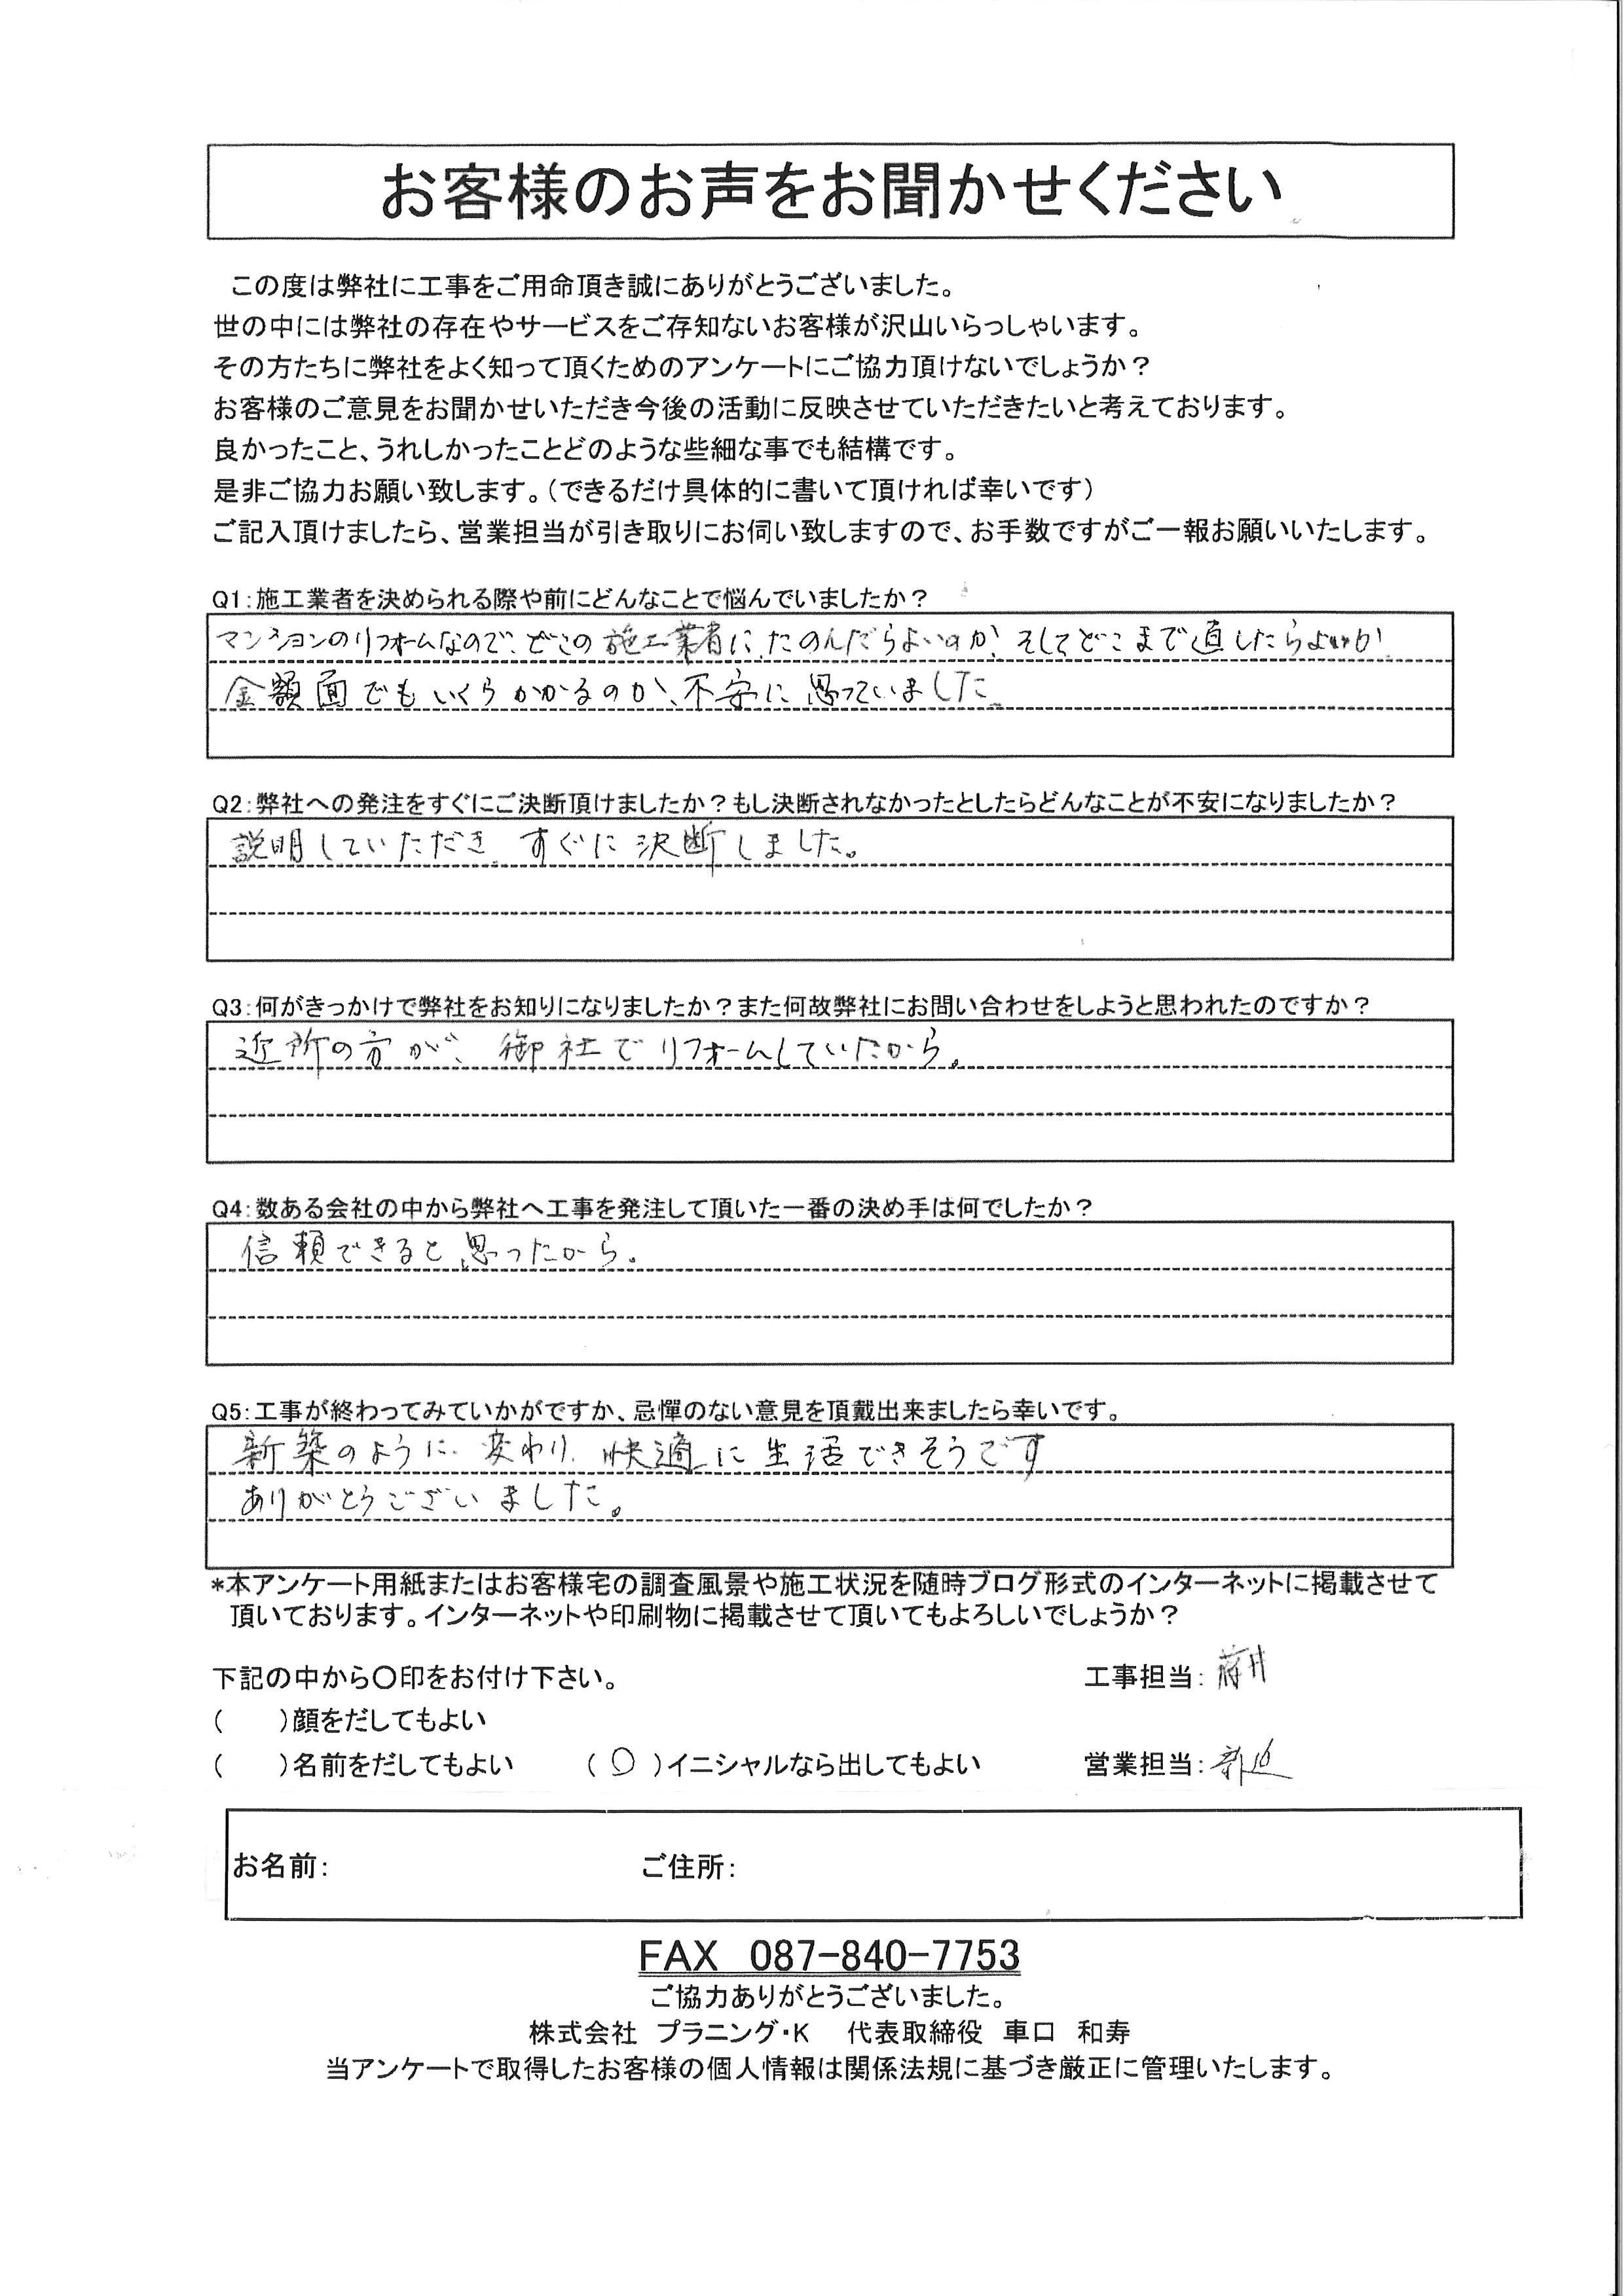 お客様のお声をお聞かせください
この度は弊社に工事をご用命頂き誠にありがとうございました。
世の中には弊社の存在やサービスをご存知ないお客様が沢山いらっしゃいます。
その方たちに弊社をよく知って頂くためのアンケートにご協力頂けないでしょうか?
お客様のご意見をお聞かせいただき今後の活動に反映させていただきたいと考えております。
良かったこと、うれしかったことどのような些細な事でも結構です。
是非ご協力お願い致します。(できるだけ具体的に書いて頂ければ幸いです)
ご記入頂けましたら、営業担当が引き取りにお伺い致しますので、お手数ですがご一報お願いいたします。
Q1:施工業者を決められる際や前にどんなことで悩んでいましたか?
マンションのリフォームなので、どこの施工業者に、たのんだらよいのか、そしてどこまで直したらよいか
金額面でもいくらかかるのか、不安に思っていました
Q2:弊社への発注をすぐにご決断頂けましたか?もし決断されなかったとしたらどんなことが不安になりましたか?
説明していただき、すぐに決断しました。
Q3:何がきっかけで弊社をお知りになりましたか?また何故弊社にお問い合わせをしようと思われたのですか?
近所の方が、御社でリフォームしていたから。
Q4:数ある会社の中から弊社へ工事を発注して頂いた一番の決め手は何でしたか?
信頼できると思ったから。
Q5:工事が終わってみていかがですか、忌憚のない意見を頂戴出来ましたら幸いです。
新築のように変わり、快適に生活できそうです
ありがとうございました。
*本アンケート用紙またはお客様宅の調査風景や施工状況を随時ブログ形式のインターネットに掲載させて
頂いております。インターネットや印刷物に掲載させて頂いてもよろしいでしょうか?
下記の中から〇印をお付け下さい。 工事担当:
( )顔をだしてもよい
( )名前をだしてもよい (〇)イニシャルなら出してもよい 営業担当:
お名前: ご住所:
FAX 087-840-7753
ご協力ありがとうございました。
株式会社 プラニング・K 代表取締役 車口 和寿
当アンケートで取得したお客様の個人情報は関係法規に基づき厳正に管理いたします。